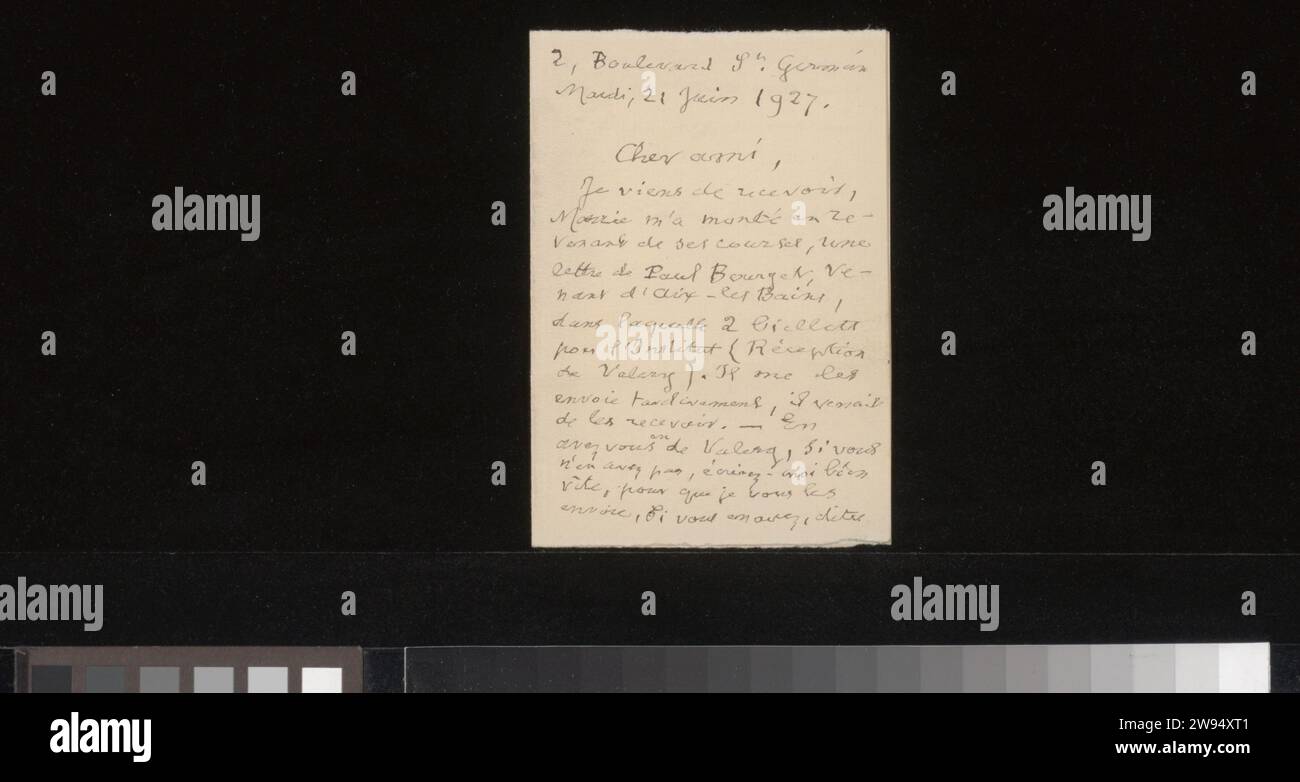 2, Boulevard St. Germain
Mardi, 21 Juin 1927.
Cher ami,
Je viens de recevoir,
Marie m'a monté en re-
venant de ses courses, une
lettre de Paul Bourget, ve-
nant d'Aix-les Bains,
dans laquelle 2 billets
pour l'Institut (Réception
de Valery). Il me les
envoie tardivement, il venait
de les recevoir. — En
avez vous en de Valery, si vous
n'en avez pas, écrivez-moi bien
vite, pour que je vous les
envoie, Si vous en avez, dites
alamy
Image ID: 2W94XT1
www.alamy.com